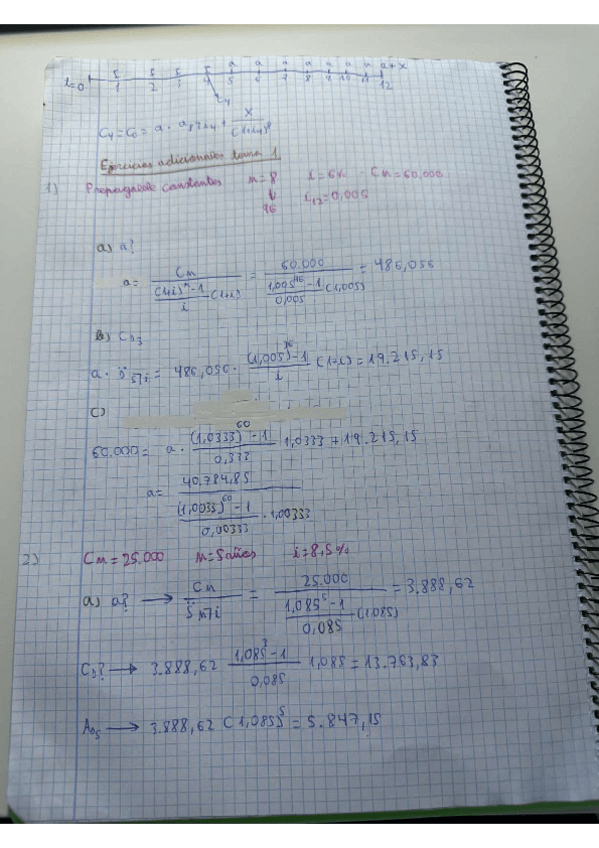 5 5 5 5 a a a a a a a a+x
t=0 1 2 3 4 5 6 7 8 9 10 11 12
C₄
C₄=C₀= a · a₈¬i₄ + X/(1+i₄)⁸
Ejercicios adicionales tema 1
1) Prepagable constantes n=8 i=6% - Cn=60.000
↓ 96 i₁₂=0,005
a) a?
a= Cn / (((1+i)ⁿ-1)/i (1+i)) = 60.000 / ((1,005⁹⁶-1)/0,005 (1,005)) = 486,056
b) C₃
a · s̈n¬i = 486,056 · ((1,005)³⁶-1)/i (1+i) = 19.215,15
c)
60.000= a · ((1,0333)⁶⁰-1)/0,333 1,0333 + 19.215,15
a= 40.784,85 / (((1,0033)⁶⁰-1)/0,00333 · 1,00333)
2) Cn=25.000 n=5años i=8,5%
a) a? → Cn / s̈n¬i = 25.000 / ((1,085⁵-1)/0,085 (1.085)) = 3.888,62
C₃? → 3.888,62 (1,085³-1)/0,085 1,085 = 13.763,83
→ 3.888,62 (1,085)⁵ = 5.847,15